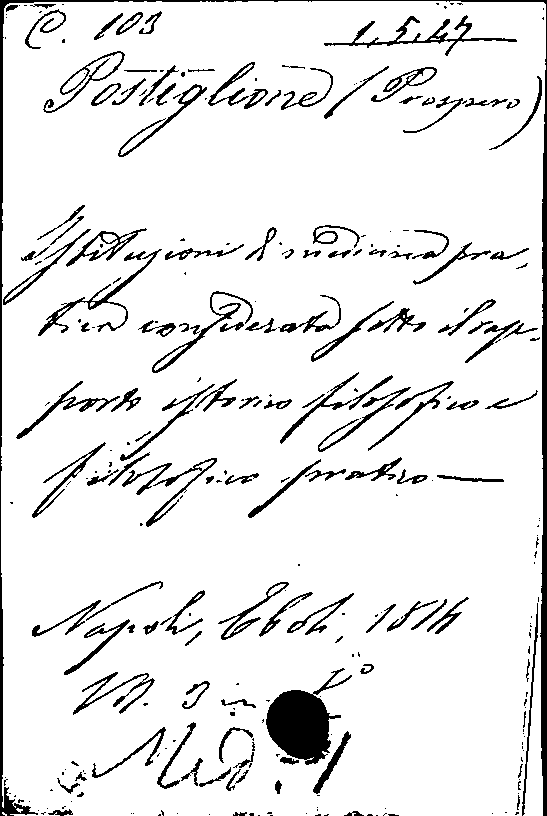 C. 103 1.5.27
Postiglione (Prospero)
Istituzioni di medicina pra-
tica considerata sotto il rap-
porto istorico filosofico e
filosofico pratico —
Napoli, Eboli, 1814
Vol. 3 in 8º
Med. 1